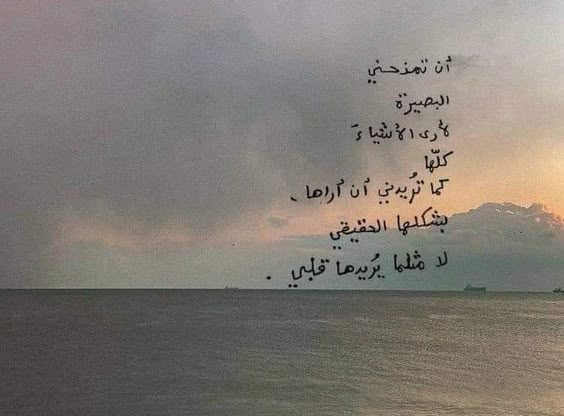 أن تمنحني
البصيرة
لأرى الأشياءَ
كلّها
كما تُريدني أن أراها،
بشكلها الحقيقي
لا مثلما يُريدها قلبي .